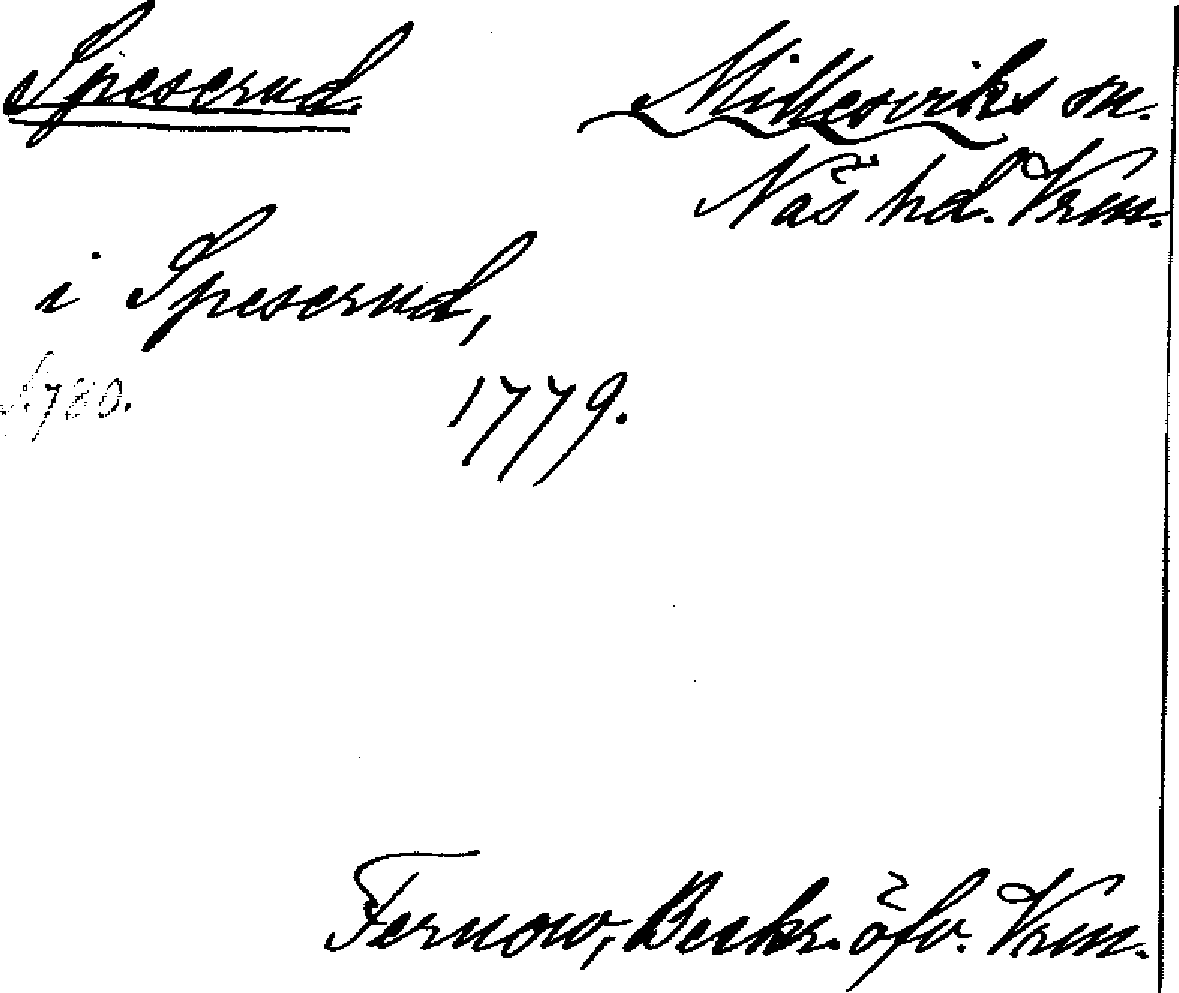 Speserud. Millesviks sn.
Näs hd. Vrm.
i Speserud,
s. 780. 1779.
Fernow, Beskr. öfv. Vrm.